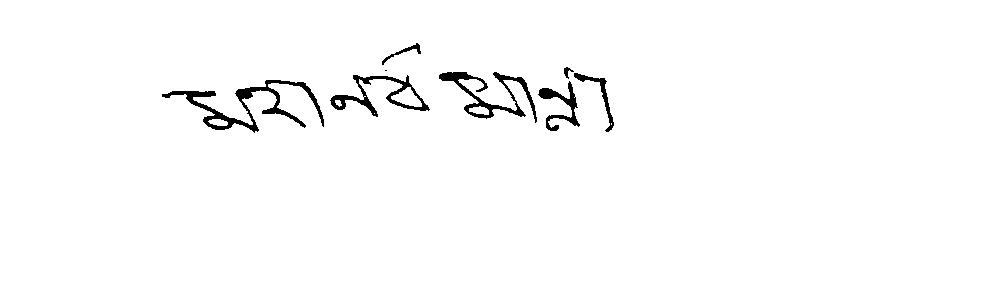 মহানর্ব মান্না